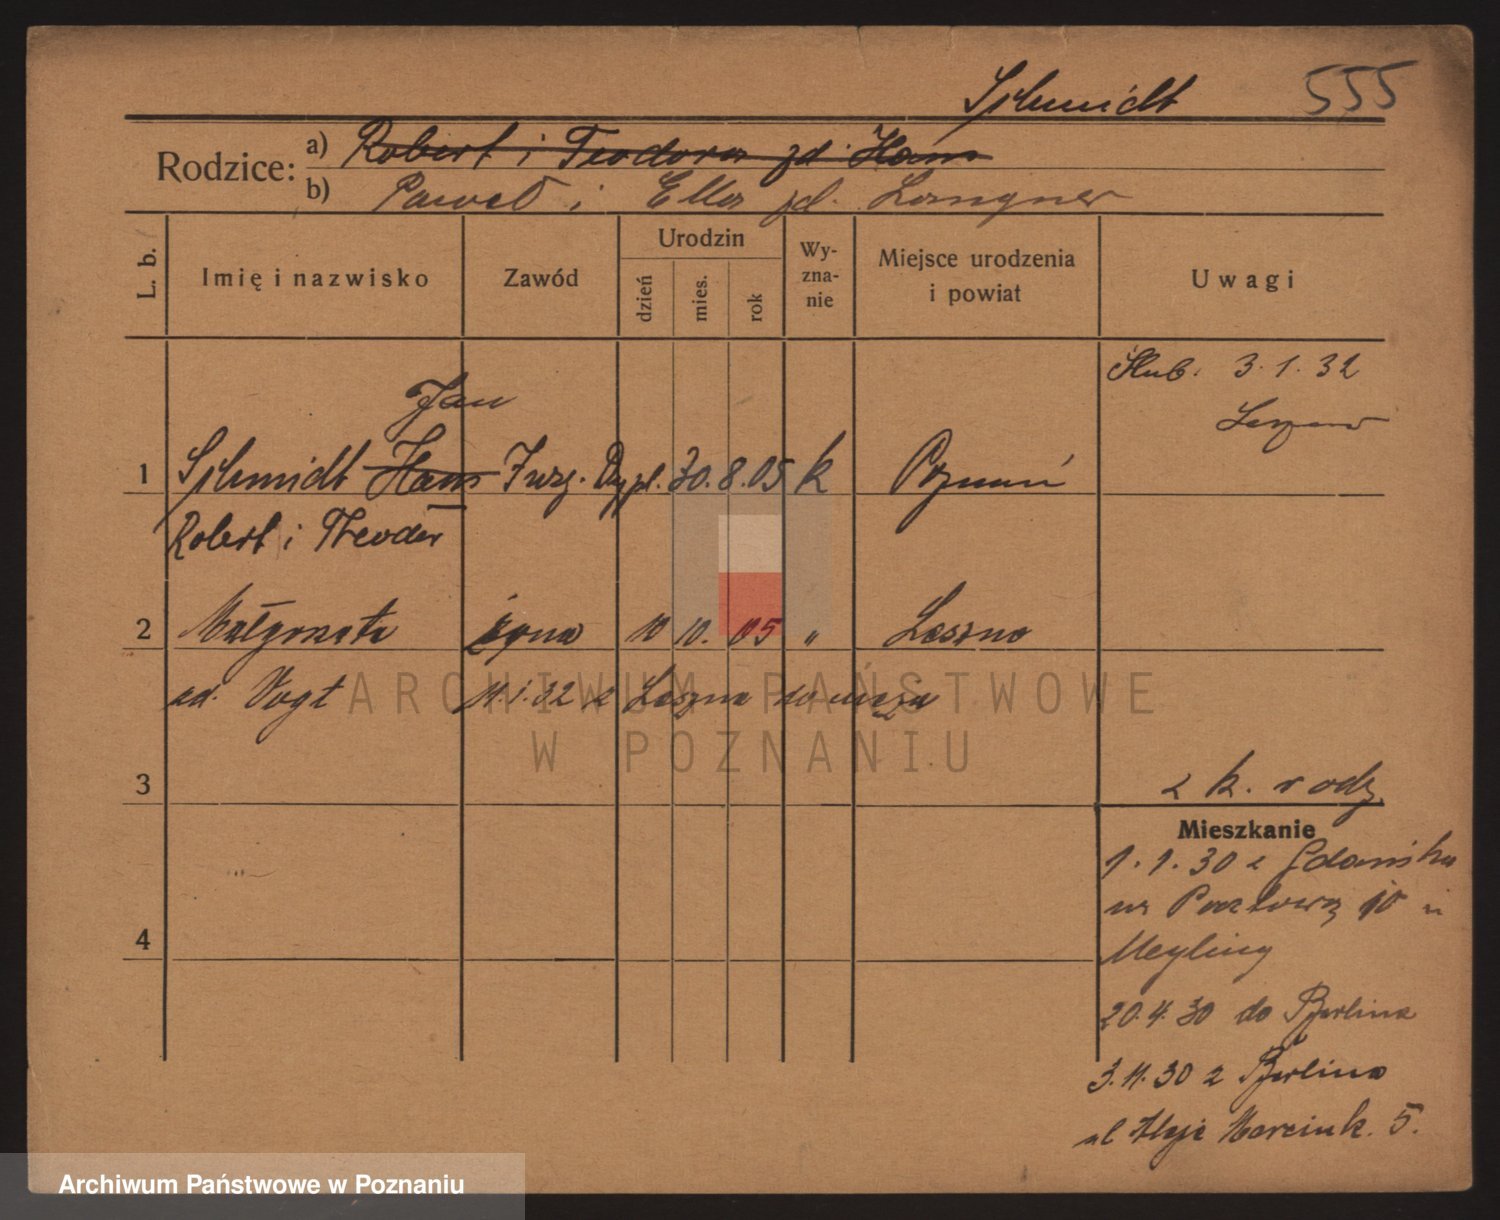 Schmidt 555
Rodzice: a) Robert i Teodora zd. Hans
b) Paweł i Ella zd. Langner
L. b. Imię i nazwisko Zawód Urodzin dzień mies. rok Wy-zna-nie Miejsce urodzenia i powiat Uwagi
Ślub. 3.1.32
Leszno
Jan
1 Schmidt Hans Inż. Dypl. 30. 8. 05 k Poznań
Robert i Theodor
2 Małgorzata żona 10 10. 05 " Leszno
zd. Vogt 11.1.32 z Leszna do męża
3 z k. rodz.
Mieszkanie
1.1.30 z Gdańska
na Pocztową 10 u
Meyling
4
20.4.30 do Berlina
3.11.30 z Berlina
ul Aleje Marcink. 5.
ARCHIWUM PAŃSTWOWE
W POZNANIU
Archiwum Państwowe w Poznaniu